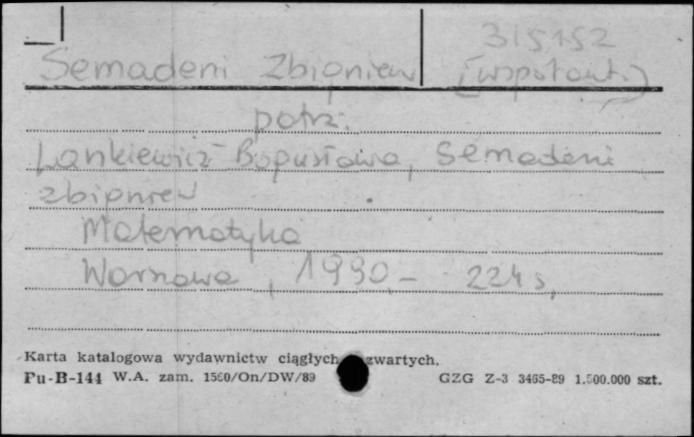 315152
Semadeni Zbigniew (współaut.)
patrz:
Lankiewicz Bogusława, Semadeni
Zbigniew
Matematyka
Warszawa, 1990,- 224 s,
Karta katalogowa wydawnictw ciągłych zwartych.
Pu-B-144 W.A. zam. 1560/On/DW/89 GZG Z-3 3465-89 1.500.000 szt.